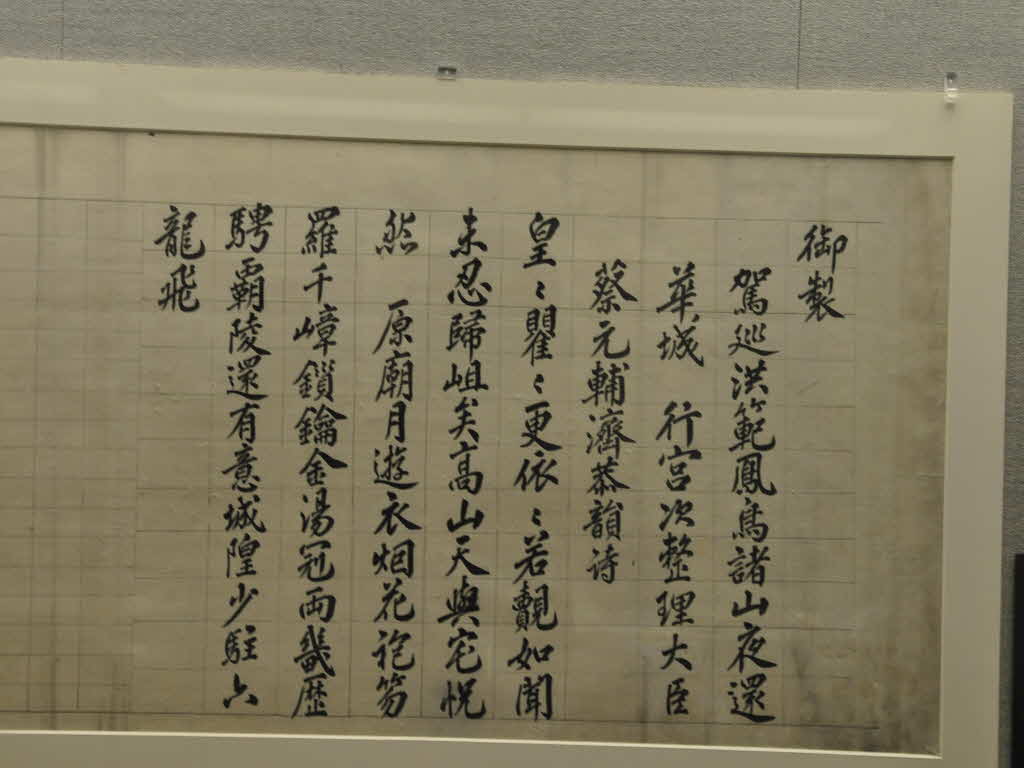 御製
駕巡洪範鳳鳥諸山夜還
華城 行宮次整理大臣
蔡元輔濟恭韻诗
皇〻瞿〻更依〻若覿如聞
未忍歸岨矣高山天與宅怳
然 原廟月遊衣烟花袍笏
羅千嶂鎖鑰金湯冠兩畿歷
聘覇陵還有意城隍少駐六
龍飛